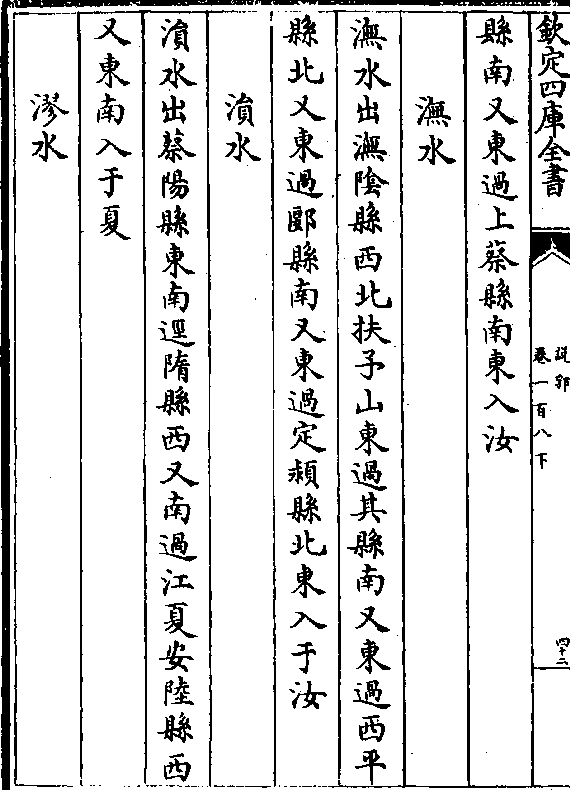 欽定四庫全書
說郛
卷一百八下
四十二
縣南又東過上蔡縣南東入汝
潕水
潕水出潕陰縣西北扶予山東過其縣南又東過西平
縣北又東過郾縣南又東過定潁縣北東入于汝
溳水
溳水出蔡陽縣東南逕隋縣西又南過江夏安陸縣西
又東南入于夏
漻水